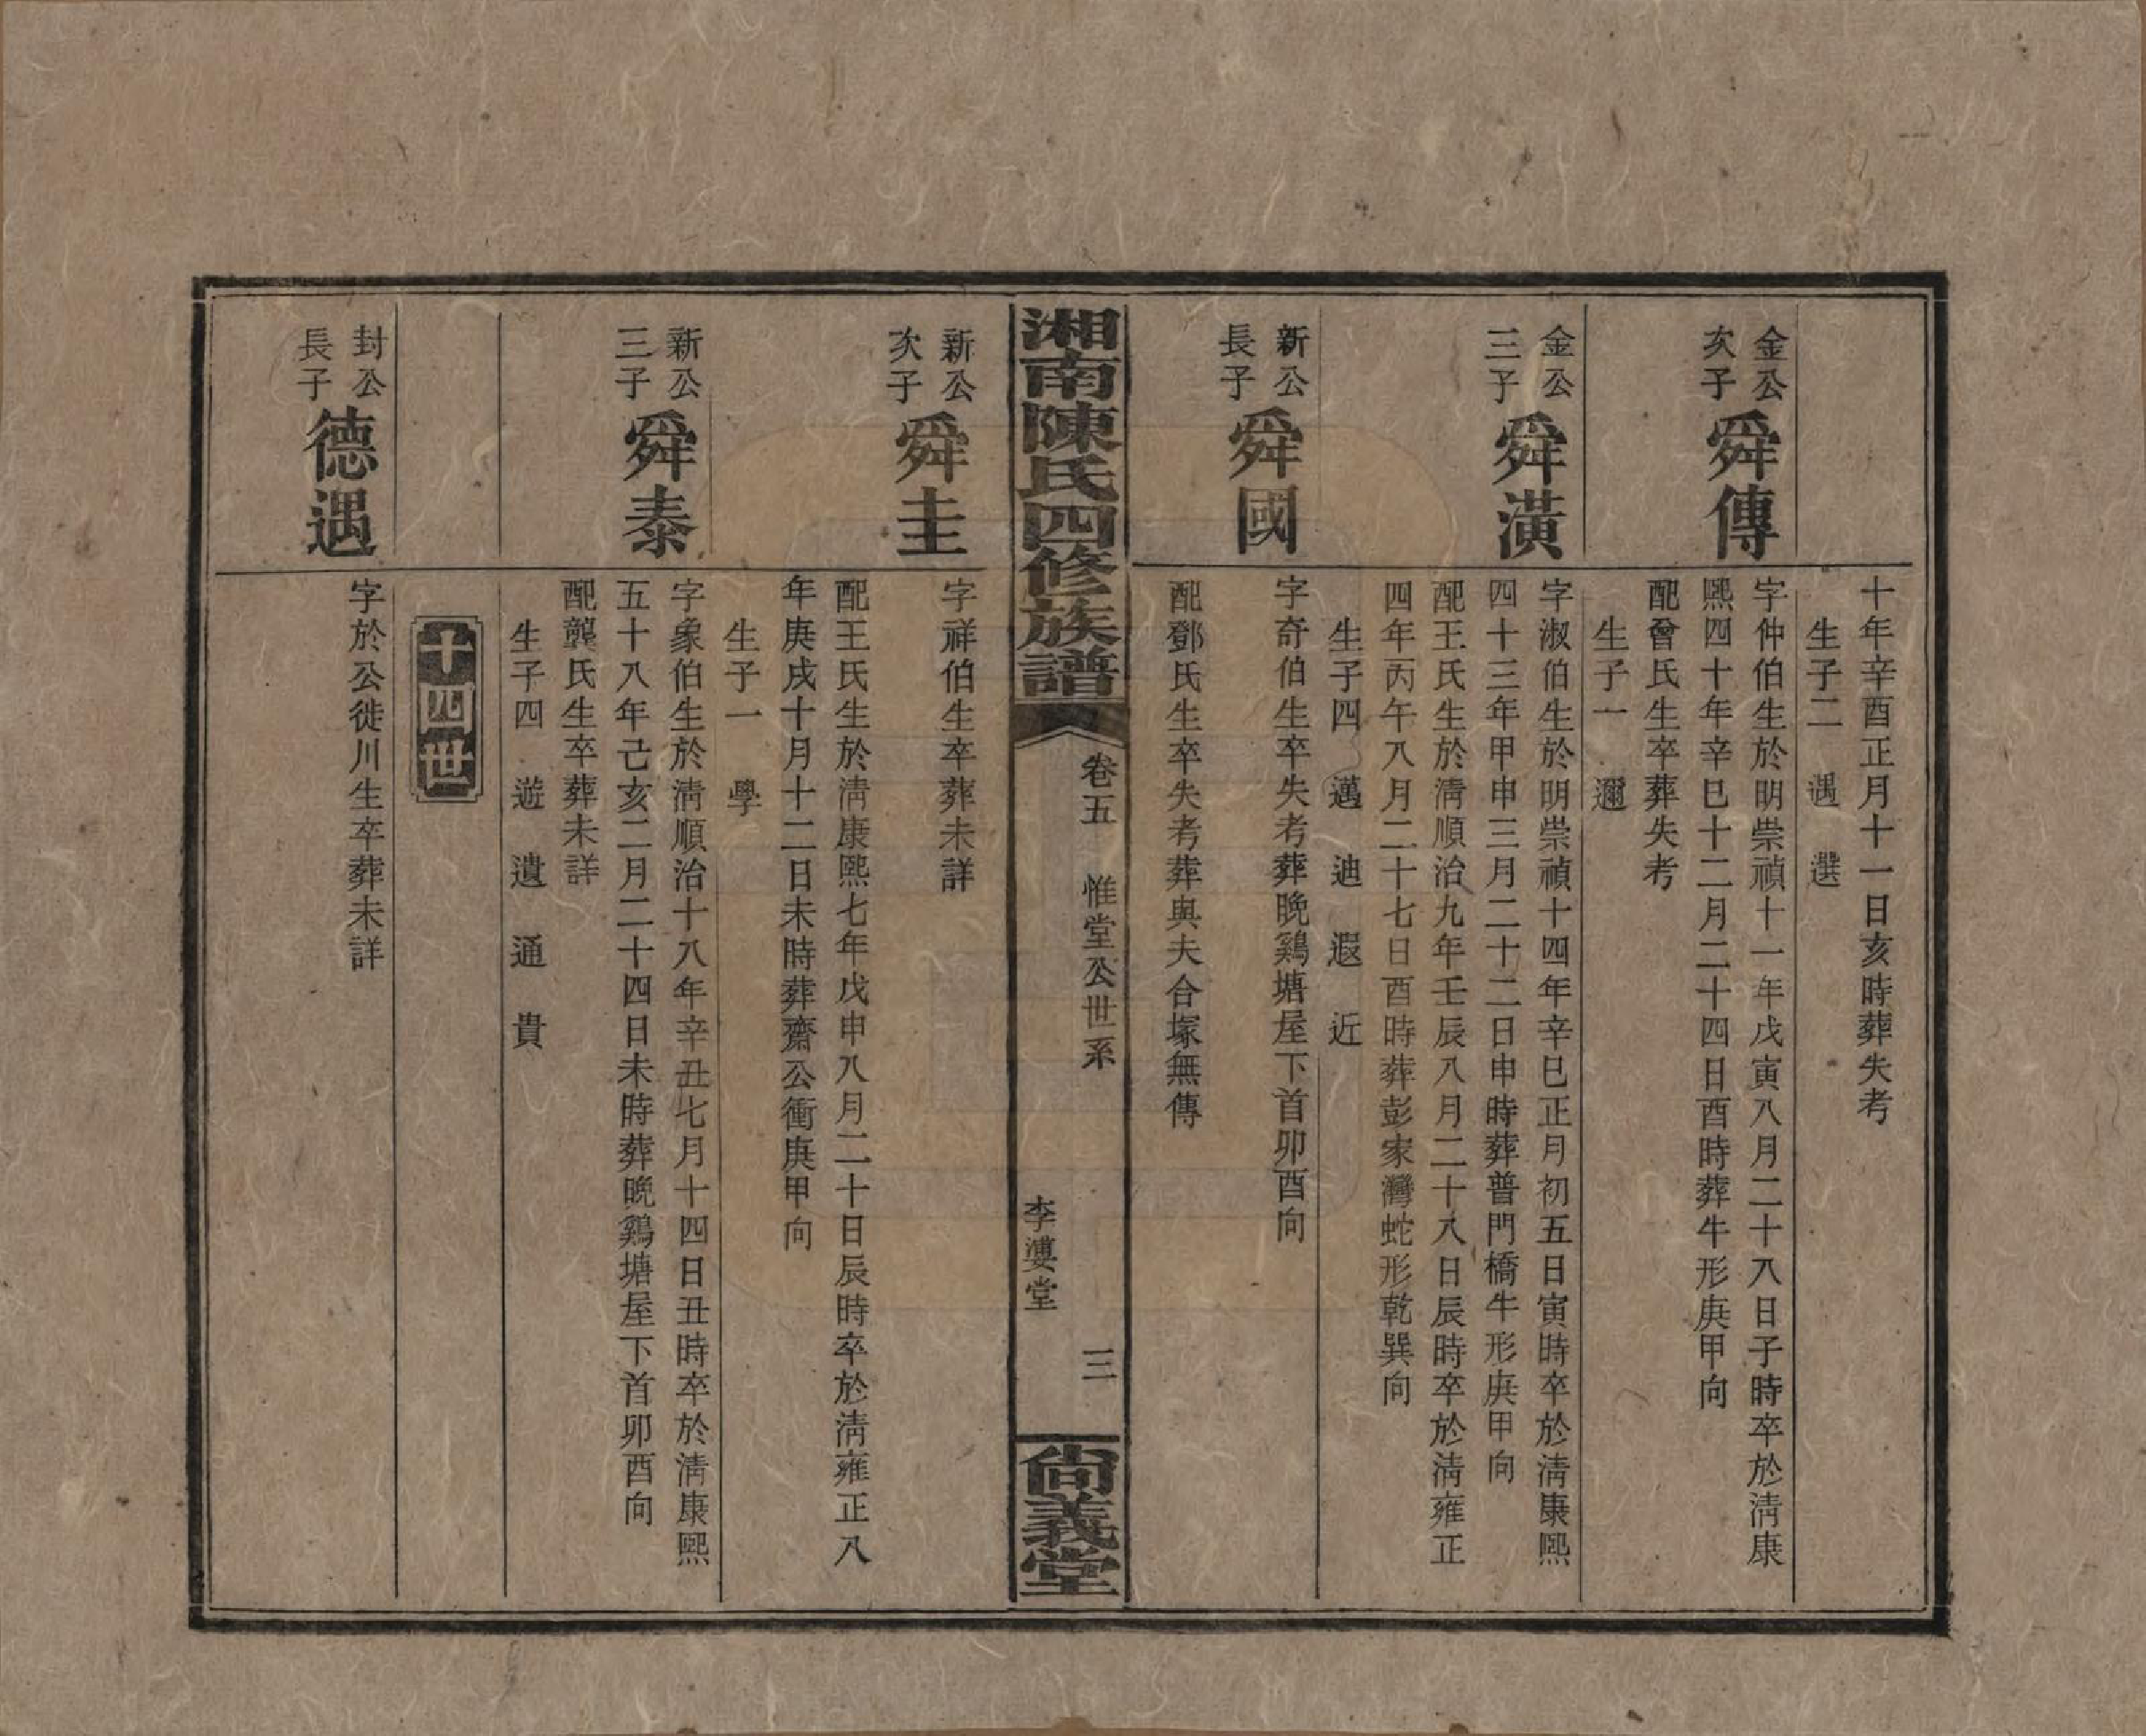 十年辛酉正月十一日亥時葬失考
生子二　遇　選
金公
次子
舜傳
字仲伯生於明崇禎十一年戊寅八月二十八日子時卒於淸康
熙四十年辛巳十二月二十四日酉時葬牛形庚甲向
配曾氏生卒葬失考
生子一　邇
金公
三子
舜潢
字淑伯生於明崇禎十四年辛巳正月初五日寅時卒於淸康熙
四十三年甲申三月二十二日申時葬普門橋牛形庚甲向
配王氏生於淸順治九年壬辰八月二十八日辰時卒於淸雍正
四年丙午八月二十七日酉時葬彭家灣蛇形乾巽向
生子四　邁　迪　遐　近
新公
長子
舜國
字奇伯生卒失考葬晚鷄塘屋下首卯酉向
配鄧氏生卒失考葬與夫合塚無傳
湘南陳氏四修族譜
卷五　惟堂公世系
三
李婆堂
尙義堂
新公
次子
舜圭
字祥伯生卒葬未詳
配王氏生於淸康熙七年戊申八月二十日辰時卒於淸雍正八
年庚戌十月十二日未時葬齋公衝庚甲向
生子一　學
新公
三子
舜泰
字象伯生於淸順治十八年辛丑七月十四日丑時卒於淸康熙
五十八年己亥二月二十四日未時葬晚鷄塘屋下首卯酉向
配龔氏生卒葬未詳
生子四　遊　遺　通　貴
十四世
封公
長子
德遇
字於公徙川生卒葬未詳